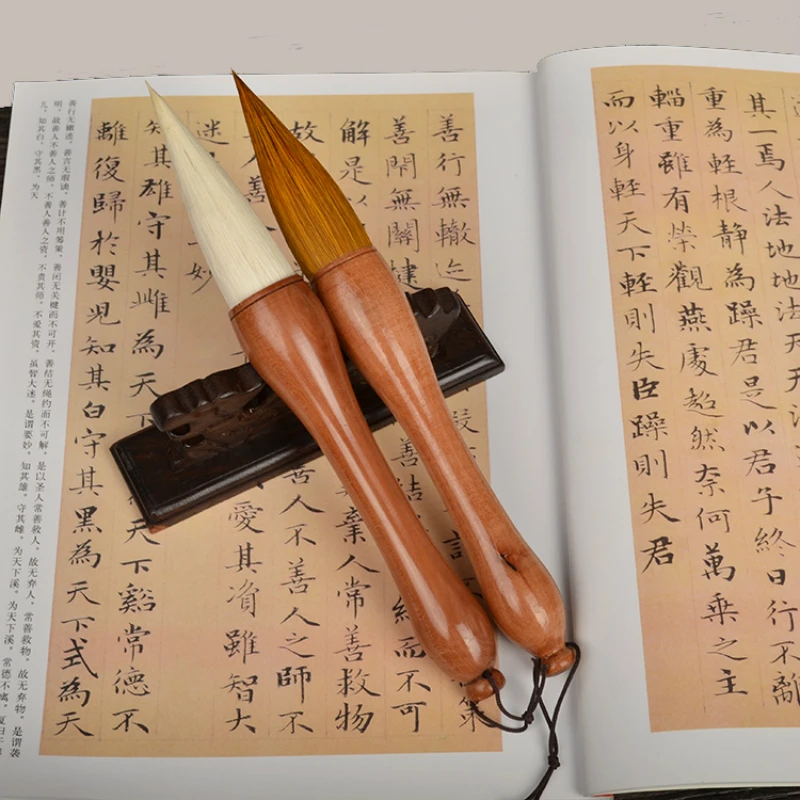 其一焉人法地地法天天法
重為輕根靜為躁君是以君子終日行不離
輜重雖有榮觀燕處超然奈何萬乘之主
而以身輕天下輕則失臣躁則失君
善行無轍迹
善閇無關楗 善結 約而不可
解是以 棄人常善救物
故 善人不善人之師不
人善 愛其資雖智大
迷 妙
知其雄守其雌為天下 天下谿常德不
離復歸於嬰児知其白守其黑為天下式為天
善行无辙迹，善言无瑕谪，善计不用筹策，善闭无关楗而不可开，善结无绳约而不可解，是以圣人常善救人，故无弃人，常善救物，故无弃物，是谓袭
明，故善人不善人之师，不善人善人之资，不贵其师，不爱其资，虽智大迷，是谓要妙，知其雄，守其雌，为天下溪，为天下溪，常德不离，复归于
儿，知其白，守其黑，为天